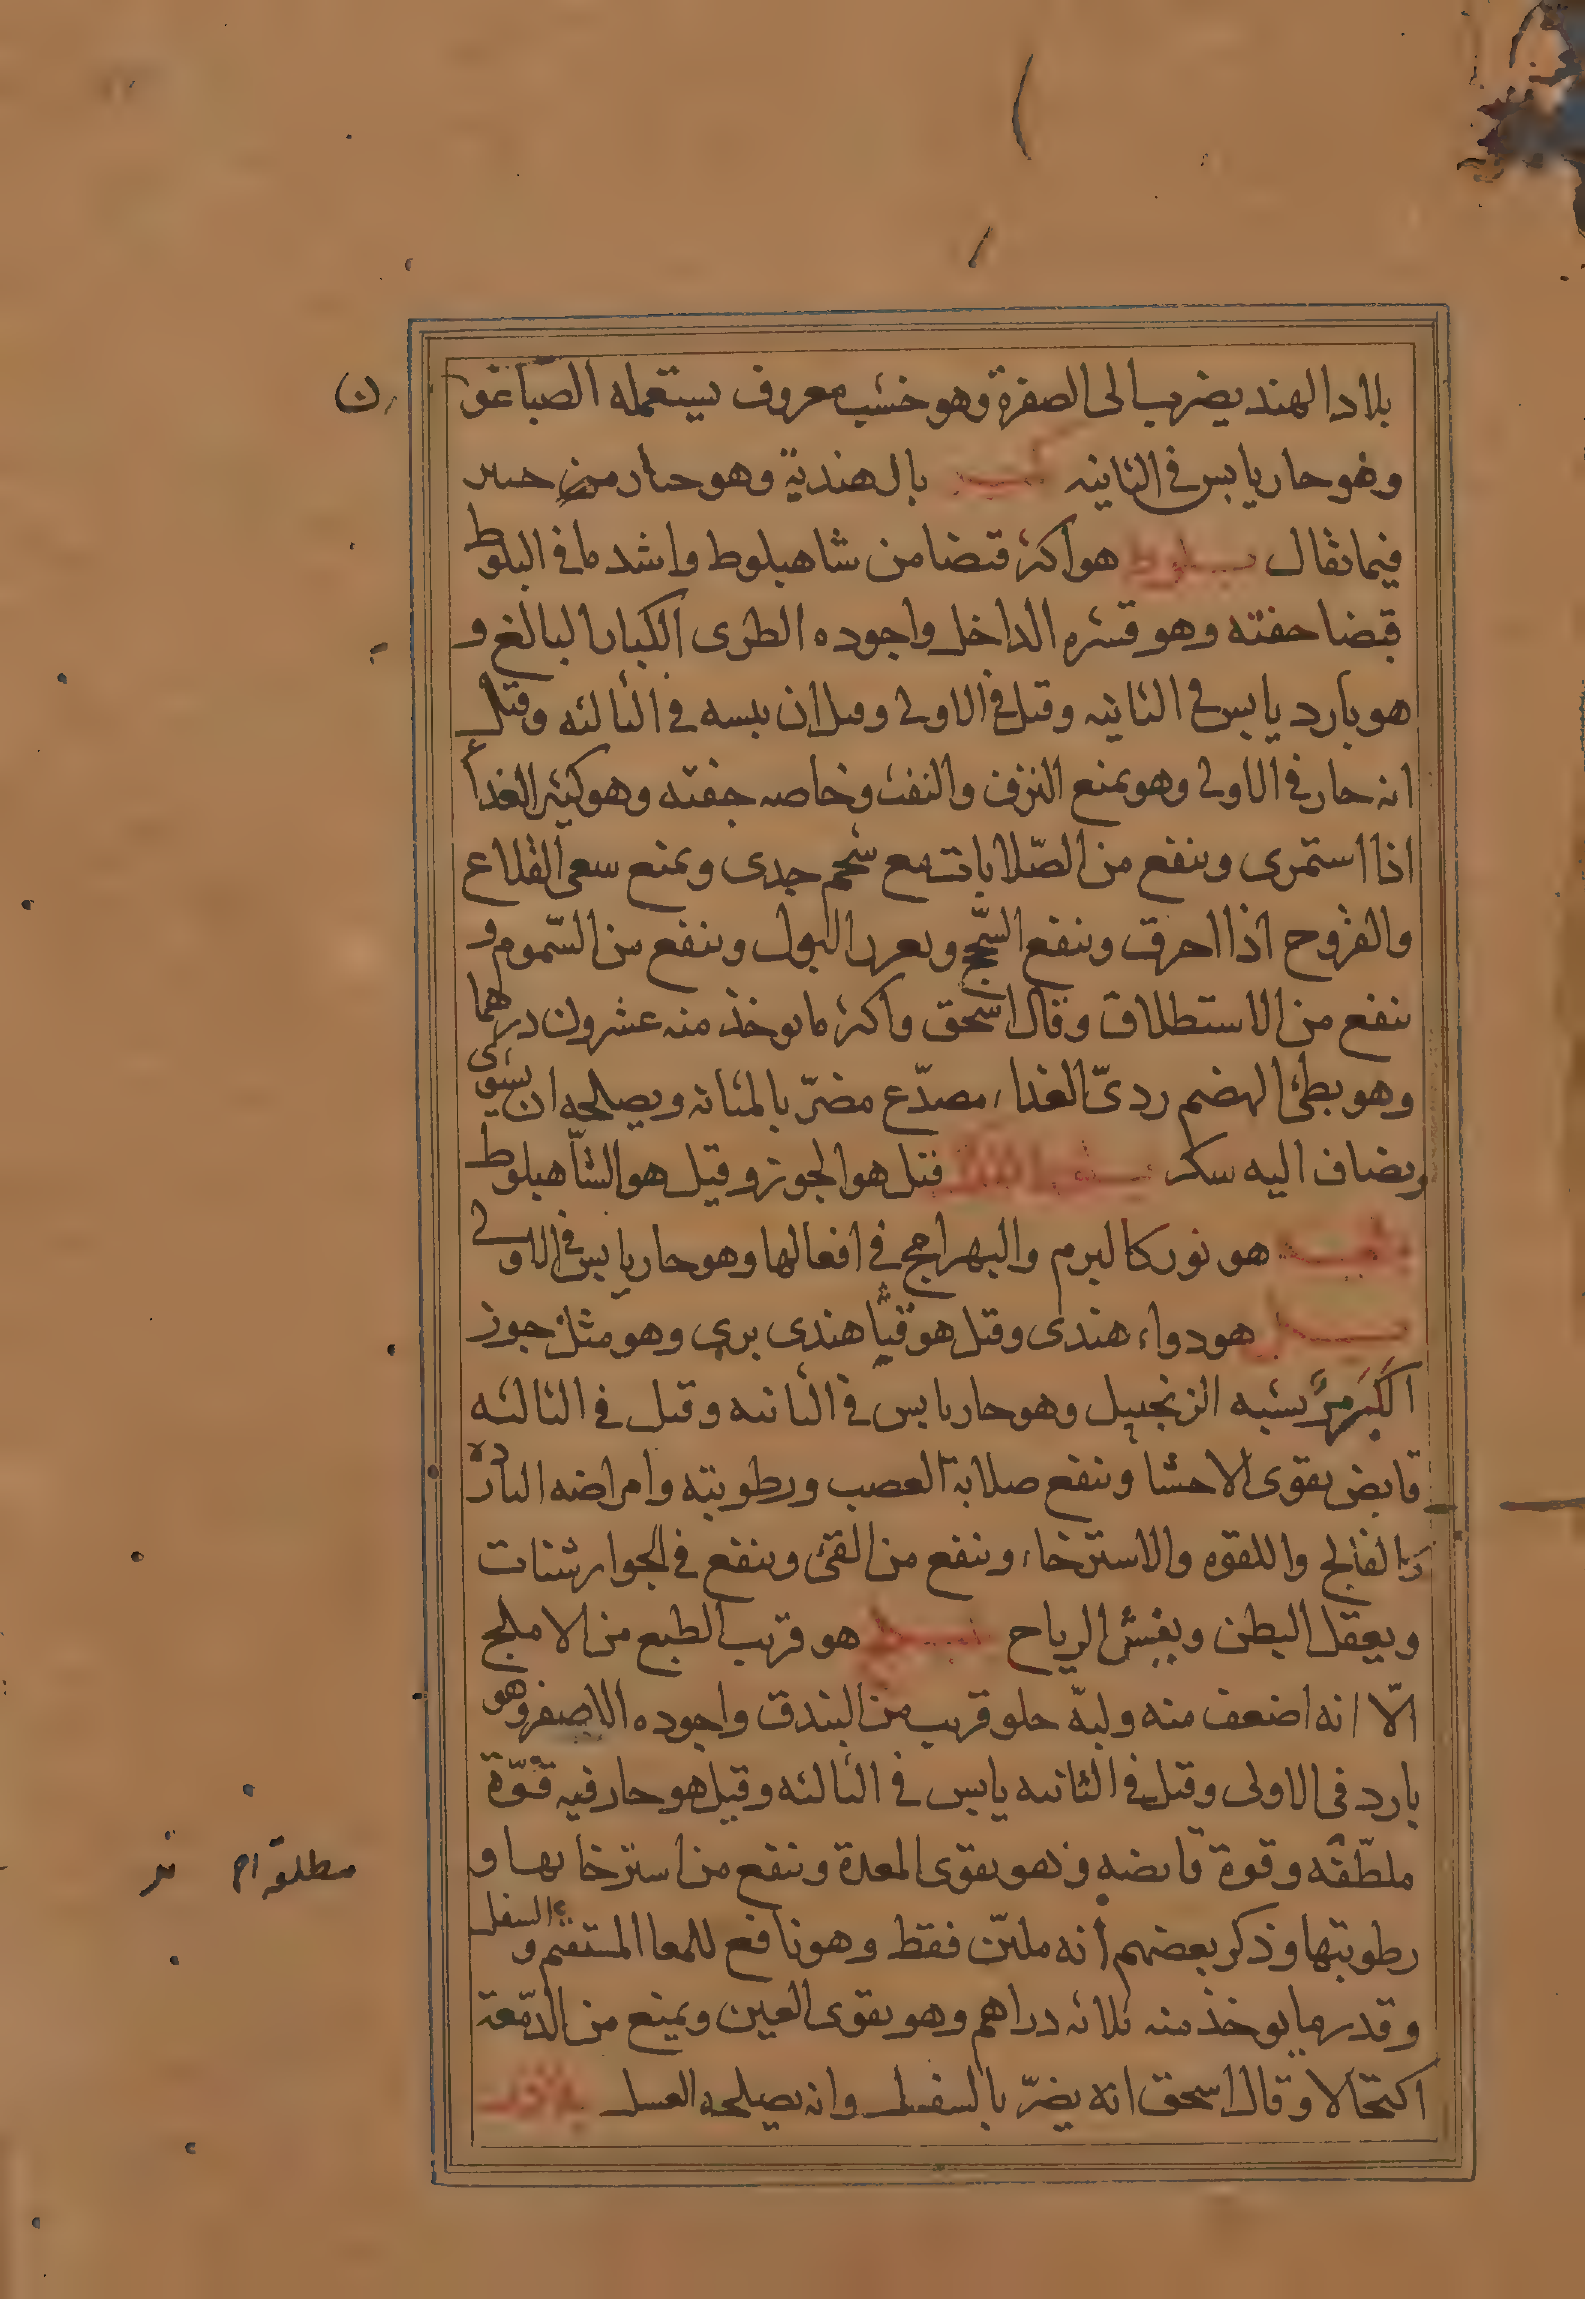 بلاد الهند يضرب الى الصفرة وهو خشب معروف يستعمله الصباغو
ن
وهو حار يابس في الثانيه بالهندية وهو حيار من
فيما يقال بلوط هو اكثر قبضا من شاهبلوط واشد ما في البلوط
قبضا جفته وهو قشره الداخل واجوده الطرى الكبار البالغ و
هو بارد يابس في الثانيه وقيل في الاولى وقيل ان يبسه في الثالثه وقيل
انه حار في الاولى وهو يمنع النزف والنفث وخاصه جفته وهو كثير الغذآ
اذا استمرى وينفع من الصّلابات مع شحم جدى ويمنع سعى القلاع
والقروح اذا احرق وينفع السّحج ويغزر البول وينفع من السّموم و
ينفع من الاستطلاق وقال اسحق واكثر ما يوخذ منه عشرون درهما
وهو بطئ الهضم ردىّ الغذاء مصدّع مضرّ بالمثانه ويصلحه ان يشوى
ويضاف اليه سكر قيل هو الجوز وقيل هو الشّاهبلوط
هو نور كالبرم والبهرامج في افعالها وهو حار يابس في الاولى
هو دواء هندى وقيل هو قثّا هندى برى وهو مثل جوز
الكَبَر مرّ يشبه الزنجبيل وهو حار يابس في الثانيه وقيل في الثالثه
قابض يقوى الاحشا وينفع صلابة العصب ورطوبته وامراضه الباردة
كالفالج واللقوه والاسترخاء وينفع من القئ وينفع في الجوارشنات
ويعقل البطن ويفش الرياح بليلج هو قريب الطبع من الاملج
الّا انه اضعف منه ولبّه حلو قريب من البندق واجوده الاصفر وهو
بارد في الاولى وقيل في الثانيه يابس في الثالثه وقيل هو حار فيه قوّة
ملطّفه وقوة قابضه وهو يقوى المعدة وينفع من استرخايها و
رطوبتها وذكر بعضهم أنه مليّن فقط وهو نافع للمعا المستقيم و السفل
وقدر ما يوخذ منه ثلاثه دراهم وهو يقوى العين ويمنع من الدّمعة
اكتحالا وقال اسحق انه يضرّ بالسفل وانه يصلحه العسل بلاذر